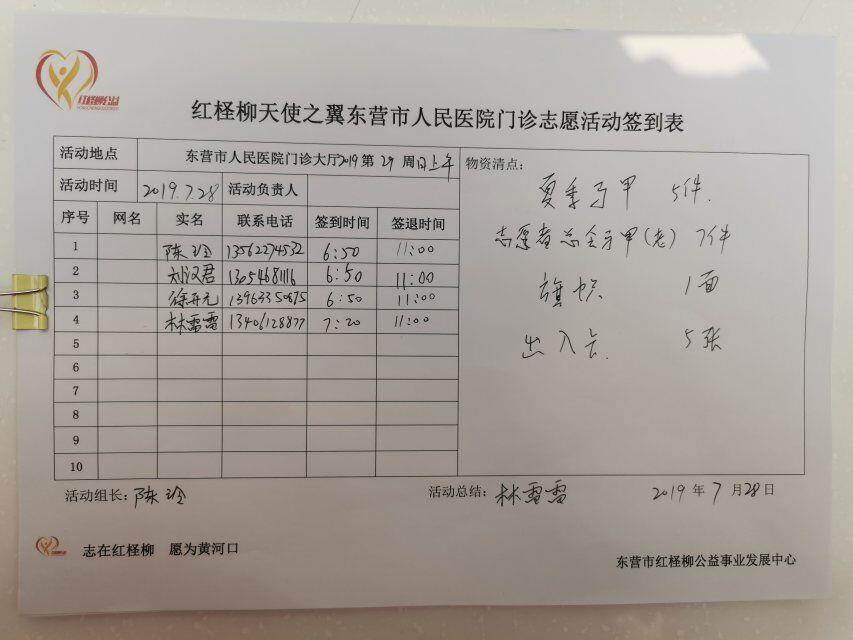 红柽柳公益
红柽柳天使之翼东营市人民医院门诊志愿活动签到表
活动地点 东营市人民医院门诊大厅2019第29周日上午
活动时间 2019.7.28 活动负责人
序号 网名 实名 联系电话 签到时间 签退时间
1 陈玲 13562274532 6:50 11:00
2 刘汉君 6:50 11:00
3 徐开元 6:50 11:00
4 林雷雷 13406128877 7:20 11:00
5
6
7
8
9
10
物资清点:
夏季马甲 5件.
志愿者总会马甲(老) 7件
旗帜 1面
出入卡. 5张
活动组长: 陈玲
活动总结: 林雷雷 2019年7月28日
志在红柽柳 愿为黄河口
东营市红柽柳公益事业发展中心